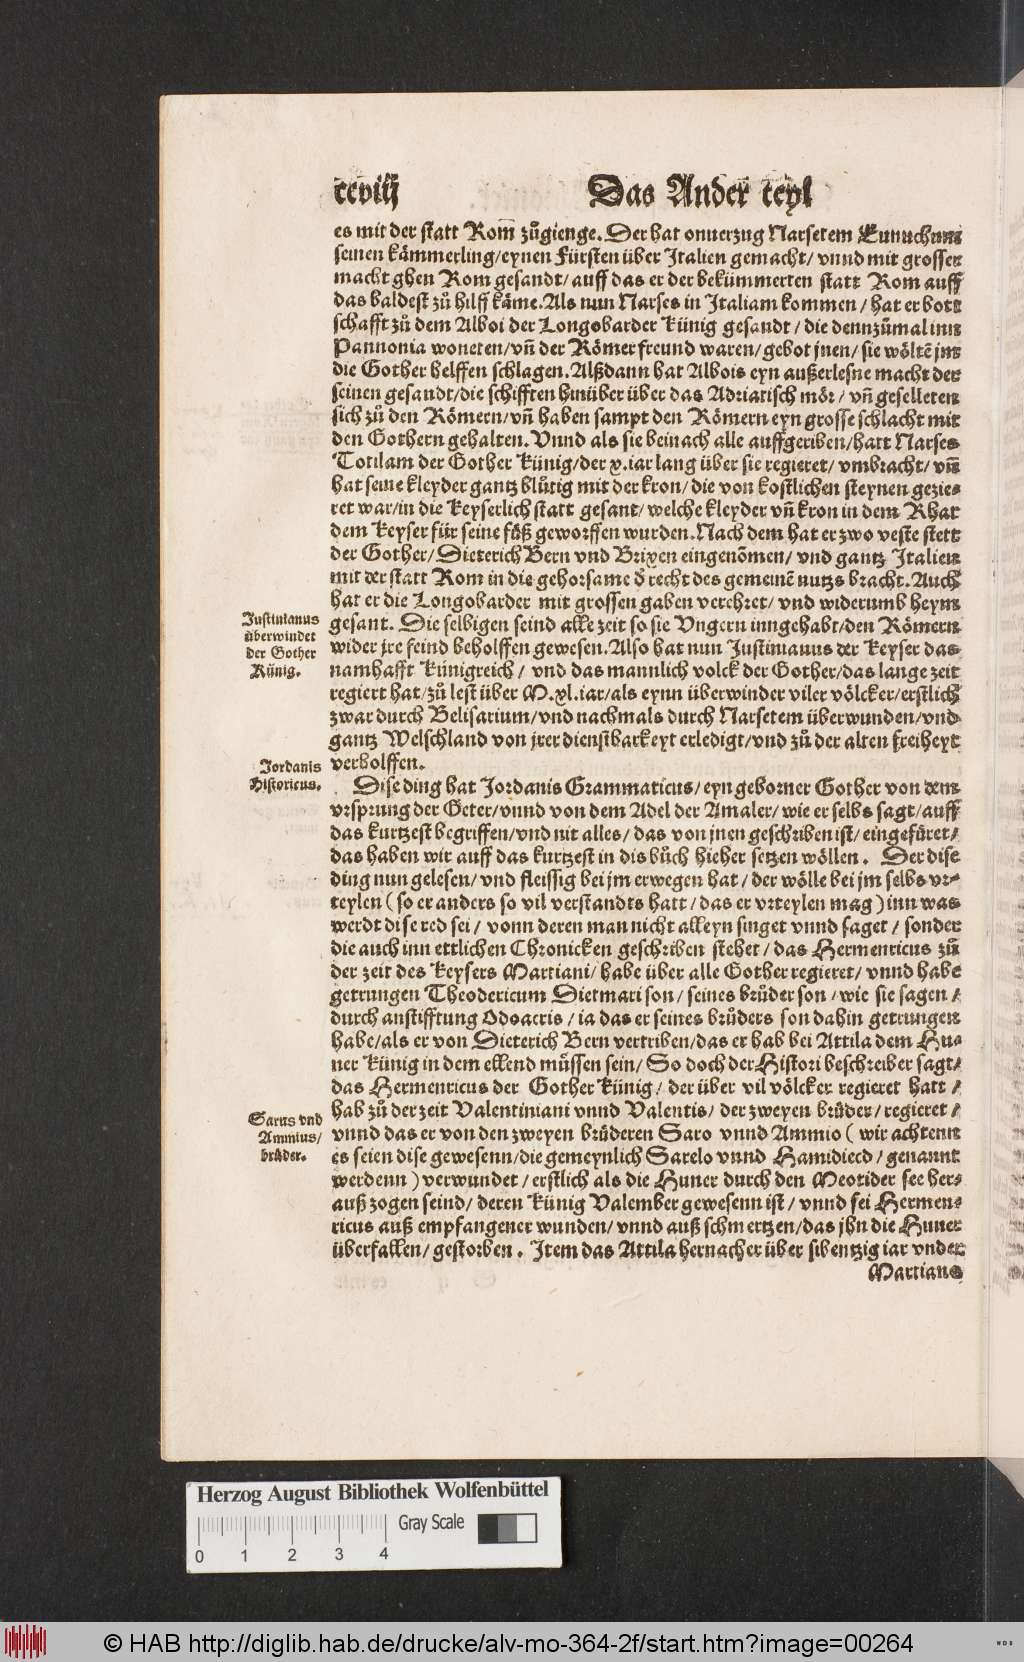 ccviij Das Ander teyl
es mit der statt Rom̃ zůgienge. Der hat onuerzug Narsetem Eunuchum
seinen kämmerling/eynen Fürsten über Italien gemacht/ vnnd mit grosser
macht ghen Rom gesandt/ auff das er der bekümmerten statt Rom auff
das baldest zů hilff käme. Als nun Narses in Italiam kommen/ hat er bott
schafft zů dem Alboi der Longobarder Künig gesandt/ die dennzůmal inn
Pannonia woneten/vñ der Römer freund waren/gebot jnen/ sie wöltē jm
die Gother helffen schlagen. Alßdann hat Albois eyn außerlesne macht der
seinen gesandt/die schifften hinüber über das Adriatisch mör/ vñ geselleten
sich zů den Römern/vñ haben sampt den Römern eyn grosse schlacht mit
den Gothern gehalten. Vnnd als sie beinach alle auffgeriben/hatt Narses
Totilam der Gother Künig/der x. iar lang über sie regieret/ vmbracht/ vñ
hat seine kleyder gantz blůtig mit der kron/ die von kostlichen steynen gezie-
ret war/in die Keyserlich statt gesant/ welche kleyder vñ kron in dem Rhat
dem Keyser für seine füß geworffen wurden. Nach dem hat er zwo veste stett
der Gother/ Dieterich Bern vnd Brixen eingenōmen/ vnd gantz Italien
mit der statt Rom in die gehorsame d' recht des gemeinē nutzs bracht. Auch
hat er die Longobarder mit grossen gaben verehret/ vnd widerumb heym
gesant. Die selbigen seind alle zeit so sie Vngern inngehabt/den Römern
wider jre feind beholffen gewesen. Also hat nun Justinianus der Keyser das
namhafft Künigreich/ vnd das mannlich volck der Gother/das lange zeit
regiert hat/zů lest über M.xl.iar/als eynn überwinder viler völcker/erstlich
zwar durch Belisarium/vnd nachmals durch Narsetem überwunden/vnd
gantz Welschland von jrer dienstbarkeyt erledigt/vnd zů der alten freiheyt
verholffen.
Justinianus
überwindet
der Gother
Künig.
Jordanis
Historicus.
Dise ding hat Jordanis Grammaticus/ eyn geborner Gother von dem
vrsprung der Geter/vnnd von dem Adel der Amaler/ wie er selbs sagt/auff
das kurtzest begriffen/vnd nit alles/ das von jnen geschriben ist/ eingefüret/
das haben wir auff das kurtzest in dis bůch hieher setzen wöllen. Der dise
ding nun gelesen/ vnd fleissig bei jm erwegen hat/ der wölle bei jm selbs vr-
teylen (so er anders so vil verstandts hatt/ das er vrteylen mag) inn was
werdt dise red sei/ vonn deren man nicht alleyn singet vnnd saget/ sonder
die auch inn ettlichen Chronicken geschriben stehet/ das Hermenricus zů
der zeit des Keysers Martiani/ habe über alle Gother regieret/ vnnd habe
getrungen Theodericum Dietmari son/ seines brůder son/ wie sie sagen/
durch anstifftung Odoacris/ ia das er seines brůders son dahin getrungen
habe/als er von Dieterich Bern vertriben/das er hab bei Attila dem Hu-
ner Künig in dem ellend müssen sein/ So doch der Histori beschreiber sagt/
das Hermenricus der Gother Künig/ der über vil völcker regieret hatt/
hab zů der zeit Valentiniani vnnd Valentis/ der zweyen brüder/ regieret/
vnnd das er von den zweyen brüderen Saro vnnd Ammio (wir achtenn
es seien dise gewesenn/die gemeynlich Sarelo vnnd Hamidiecd/ genannt
werdenn) verwundet/ erstlich als die Huner durch den Meotider see her-
auß zogen seind/ deren Künig Valember gewesenn ist/ vnnd sei Hermen-
ricus auß empfangener wunden/ vnnd auß schmertzen/das jhn die Huner
überfallen/ gestorben. Item das Attila hernacher über sibentzig iar vnder
Sarus vnd
Ammius/
brüder.
Martiano
Herzog August Bibliothek Wolfenbüttel
Gray Scale
0 1 2 3 4
© HAB http://diglib.hab.de/drucke/alv-mo-364-2f/start.htm?image=00264